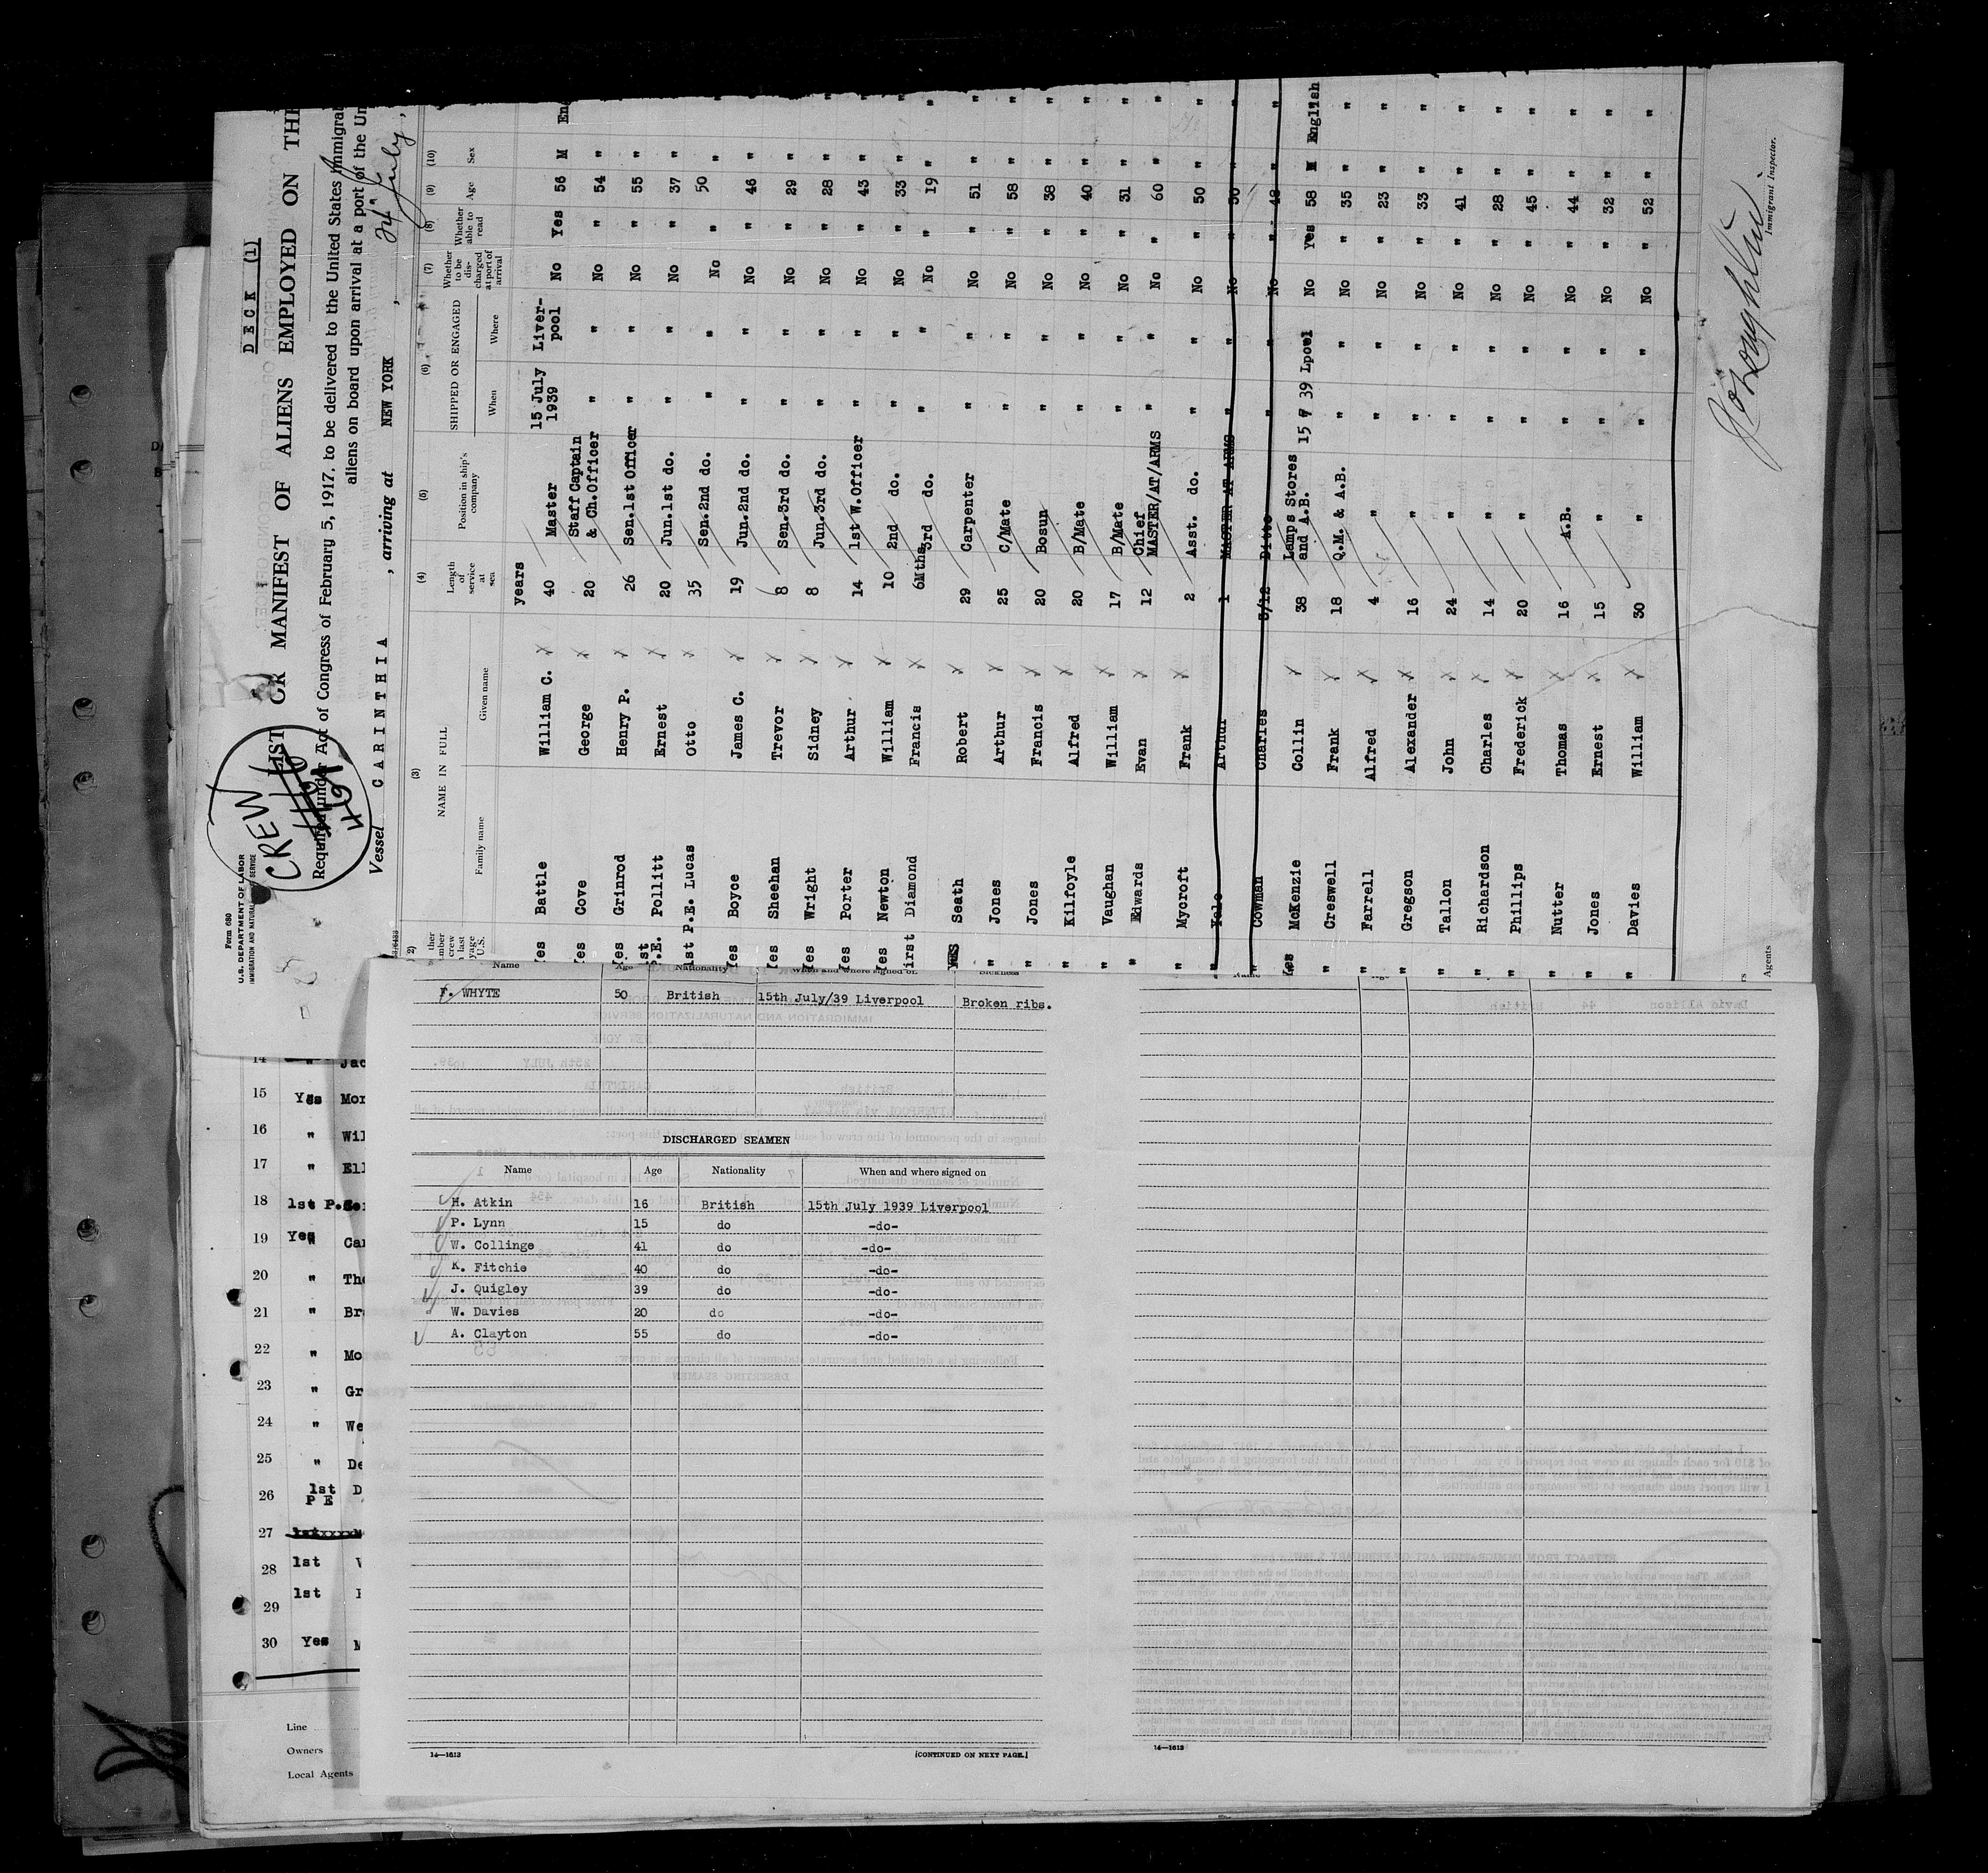 Form 680
U.S. DEPARTMENT OF LABOR
IMMIGRATION AND NATURALIZATION SERVICE
DECK (1)
CREW
461
LIST OR MANIFEST OF ALIENS EMPLOYED ON THE
Required under Act of Congress of February 5, 1917, to be delivered to the United States Immigra
aliens on board upon arrival at a port of the Un
Vessel CARINTHIA , arriving at NEW YORK , 24th July,
(2) (3) (4) (5) (6) (7) (8) (9) (10)
NAME IN FULL
SHIPPED OR ENGAGED
Family name Given name Length of service at sea Position in ship's company When Where Whether to be discharged at port of arrival Whether able to read Age Sex
years
Yes Battle William C. 40 Master 15 July 1939 Liver-pool No Yes 56 M En
Yes Cove George 20 Staff Captain & Ch.Officer " " No " 54 " "
Yes Grinrod Henry P. 26 Sen.1st Officer " " No " 55 " "
1st P.E. Pollitt Ernest 20 Jun.1st do. " " No " 37 " "
1st P.E. Lucas Otto 35 Sen.2nd do. " " No " 50 " "
Yes Boyce James C. 19 Jun.2nd do. " " No " 46 " "
Yes Sheehan Trevor 8 Sen.3rd do. " " No " 29 " "
Yes Wright Sidney 8 Jun.3rd do. " " No " 28 " "
Yes Porter Arthur 14 1st W.Officer " " No " 43 " "
Yes Newton William 10 2nd do. " " No " 33 " "
First Diamond Francis 6Mths 3rd do. " " No " 19 " "
YES Seath Robert 29 Carpenter " " No " 51 " "
" Jones Arthur 25 C/Mate " " No " 58 " "
" Jones Francis 20 Bosun " " No " 38 " "
" Kilfoyle Alfred 20 B/Mate " " No " 40 " "
" Vaughan William 17 B/Mate " " No " 31 " "
" Edwards Evan 12 Chief MASTER/AT/ARMS " " No " 60 " "
" Mycroft Frank 2 Asst. do. " " No " 50 " "
" Yale Arthur 1 MASTER AT ARMS " " No " 50 " "
" Cowman Charles 3/12 Ditto " " No " 48 " "
Yes McKenzie Collin 38 Lamps Stores and A.B. 15 7 39 Lpool No Yes 58 M English
" Creswell Frank 18 Q.M. & A.B. " " No " 35 " "
" Farrell Alfred 4 " " " No " 23 " "
" Gregson Alexander 16 " " " No " 33 " "
" Tallon John 24 " " " No " 41 " "
" Richardson Charles 14 " " " No " 28 " "
" Phillips Frederick 20 " " " No " 45 " "
" Nutter Thomas 16 A.B. " " No " 44 " "
" Jones Ernest 15 " " " No " 32 " "
" Davies William 30 " " " No " 52 " "
Agents
Immigrant Inspector.
Name Age Nationality When and where signed on. Sickness
F. WHYTE 50 British 15th July/39 Liverpool Broken ribs.
DISCHARGED SEAMEN
Name Age Nationality When and where signed on
H. Atkin 16 British 15th July 1939 Liverpool
P. Lynn 15 do -do-
W. Collinge 41 do -do-
K. Fitchie 40 do -do-
J. Quigley 39 do -do-
W. Davies 20 do -do-
A. Clayton 55 do -do-
14—1613 [CONTINUED ON NEXT PAGE.]
14—1613
14 " Jac
15 Yes Mor
16 " Wil
17 " Ell
18 1st P.
19 Yes " Car
20 " Tho
21 " Br
22 " Mo
23 " Gr
24 " We
25 " De
26 1st P E D
27 1st
28 1st
29 1st
30 Yes M
Line
Owners
Local Agents